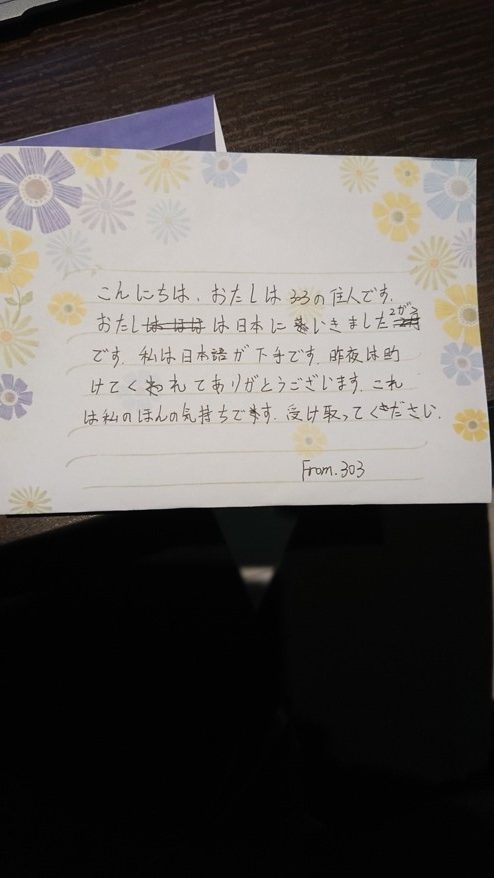 こんにちは、おたしは 303の住人です.
おたし は日本にいきました 2が3
です. 私は日本語が下手です. 昨夜は助
けてくれてありがとうございます. これ
は私のほんの気持ちです. 受け取ってください.
From. 303